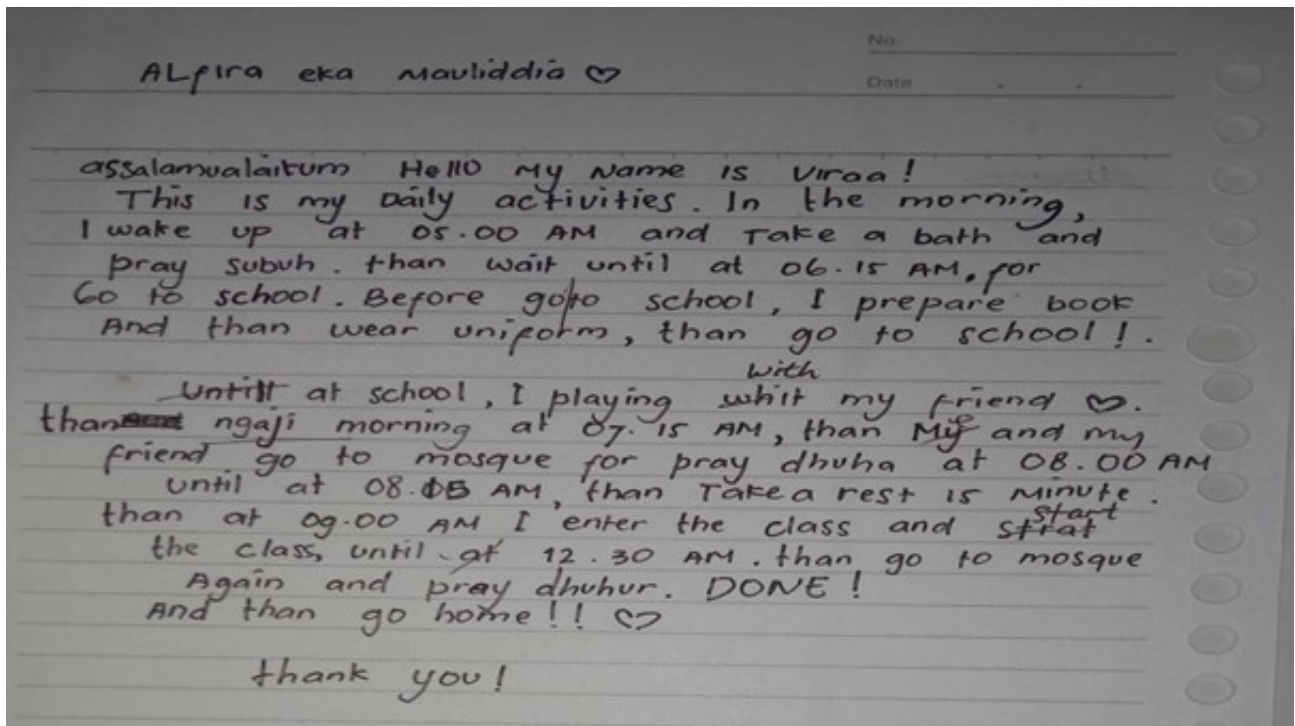 No.
ALfira eka Mauliddia ♡
Date
assalamualaikum Hello My Name is Viraa!
This is my Daily activities. In the morning,
I wake up at 05.00 AM and Take a bath and
pray subuh. than wait until at 06.15 AM, for
Go to school. Before go to school, I prepare book
And than wear uniform, than go to school!.
with
Untill at school, I playing whit my friend ♡.
than ngaji morning at 07.15 AM, than My and my
friend go to mosque for pray dhuha at 08.00 AM
until at 08.15 AM, than Take a rest 15 Minute.
start
than at 09.00 AM I enter the class and strat
the class, until at 12.30 AM. than go to mosque
Again and pray dhuhur. DONE!
And than go home!! ♡
thank you!